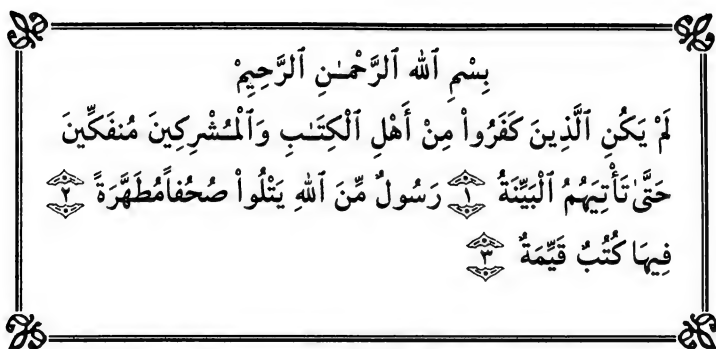 بِسْمِ ٱللهِ ٱلرَّحْمَـٰنِ ٱلرَّحِيمِْ
لَمْ يَكُنِ ٱلَّذِينَ كَفَرُواْ مِنْ أَهْلِ ٱلْكِتَـٰبِ وَٱلْمُشْرِكِينَ مُنفَكِّينَ
حَتَّىٰ تَأْتِيَهُمُ ٱلْبَيِّنَةُ ١ رَسُولٌ مِّنَ ٱللهِ يَتْلُواْ صُحُفاًمُطَهَّرَةً ٢
فِيهَا كُتُبٌ قَيِّمَةٌ ٣